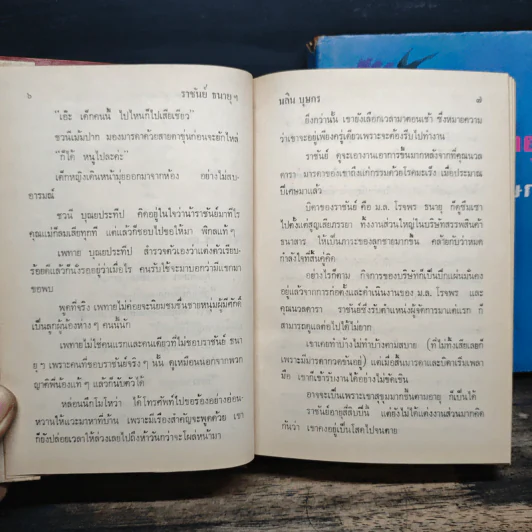 ๖
ราชันย์ ธนายุ ๆ
"เอ๊ะ เด็กคนนี้ ไปไหนก็ไปเสียเชียว"
ชวนีเม้มปาก มองมารดาด้วยสายตาขุ่นก่อนจะยักไหล่
"ก็ได้ หนูไปละค่ะ"
เด็กหญิงเดินหน้ามุ่ยออกมาจากห้อง อย่างไม่สบ
อารมณ์
ชวนี บุณยประทีป คิดอยู่ในใจว่าน้าราชันย์มาทีไร
คุณแม่ก็ลมเสียทุกที แต่แล้วก็ชอบไปขอให้มา พิกลแท้ ๆ
เพทาย บุณยประทีป สำรวจตัวเองว่าแต่งตัวเรียบ-
ร้อยดีแล้วก็นั่งรออยู่ว่าเมื่อไร คนรับใช้จะมาบอกว่ามีแขกมา
ขอพบ
พูดที่จริง เพทายไม่ค่อยจะนิยมชมชื่นชายหนุ่มผู้มีศักดิ์
เป็นลูกผู้น้องห่าง ๆ คนนี้นัก
เพทายไม่ใช่คนแรกและคนเดียวที่ไม่ชอบราชันย์ ธนา
ยุ ๆ เพราะคนที่ชอบราชันย์จริง ๆ นั้น ดูเหมือนนอกจากพวก
ญาติพี่น้องแท้ ๆ แล้วก็นับตัวได้
หล่อนนึกโมโหว่า ได้โทรศัพท์ไปขอร้องอย่างอ่อน-
หวานให้แวะมาหาที่บ้าน เพราะมีเรื่องสำคัญจะพูดด้วย เขา
ก็ยังปล่อยเวลาให้ล่วงเลยไปถึงห้าวันกว่าจะโผล่หน้ามา
นลิน บุษกร
๗
ยิ่งกว่านั้น เขายังเลือกเวลามาตอนเช้า ซึ่งหมายความ
ว่าเขาจะอยู่เพียงครู่เดียวเพราะจะต้องรีบไปทำงาน
ราชันย์ ดูจะเอางานเอาการขึ้นมากหลังจากที่คุณนวล
ดารา มารดาของเขาถึงแก่กรรมด้วยโรคมะเร็ง เมื่อประมาณ
ปีเศษมาแล้ว
บิดาของราชันย์ คือ ม.ล. โรจพร ธนายุ ก็ดูซึมเซา
ไปตั้งแต่สูญเสียภรรยา ทิ้งงานส่วนใหญ่ในบริษัทสรรพสินค้า
ธนาสาร ให้เป็นภาระของลูกชายมากขึ้น คล้ายกับว่าหมด
กำลังใจที่สิ้นคู่คิด
อย่างไรก็ตาม กิจการของบริษัทก็เป็นปึกแผ่นมั่นคง
อยู่แล้วจากการก่อตั้งและดำเนินงานของ ม.ล. โรจพร และ
คุณนวลดารา ราชันย์ซึ่งรับตำแหน่งผู้จัดการมาแต่แรก ก็
สามารถดูแลต่อไปได้ไม่ยาก
เขาเคยทำบ้างไม่ทำบ้างตามสบาย (ที่ไม่ทิ้งเสียเลยก็
เพราะมีมารดากวดขันอยู่) แต่เมื่อสิ้นมารดาและบิดาเริ่มเพลา
มือ เขาก็เข้ารับงานได้อย่างไม่ขัดเขิน
อาจจะเป็นเพราะเขาสุขุมมากขึ้นตามอายุ ก็เป็นได้
ราชันย์อายุสี่สิบปีนี้ แต่ยังไม่ได้แต่งงานส่วนมากคิด
กันว่า เขาคงอยู่เป็นโสดไปจนตาย